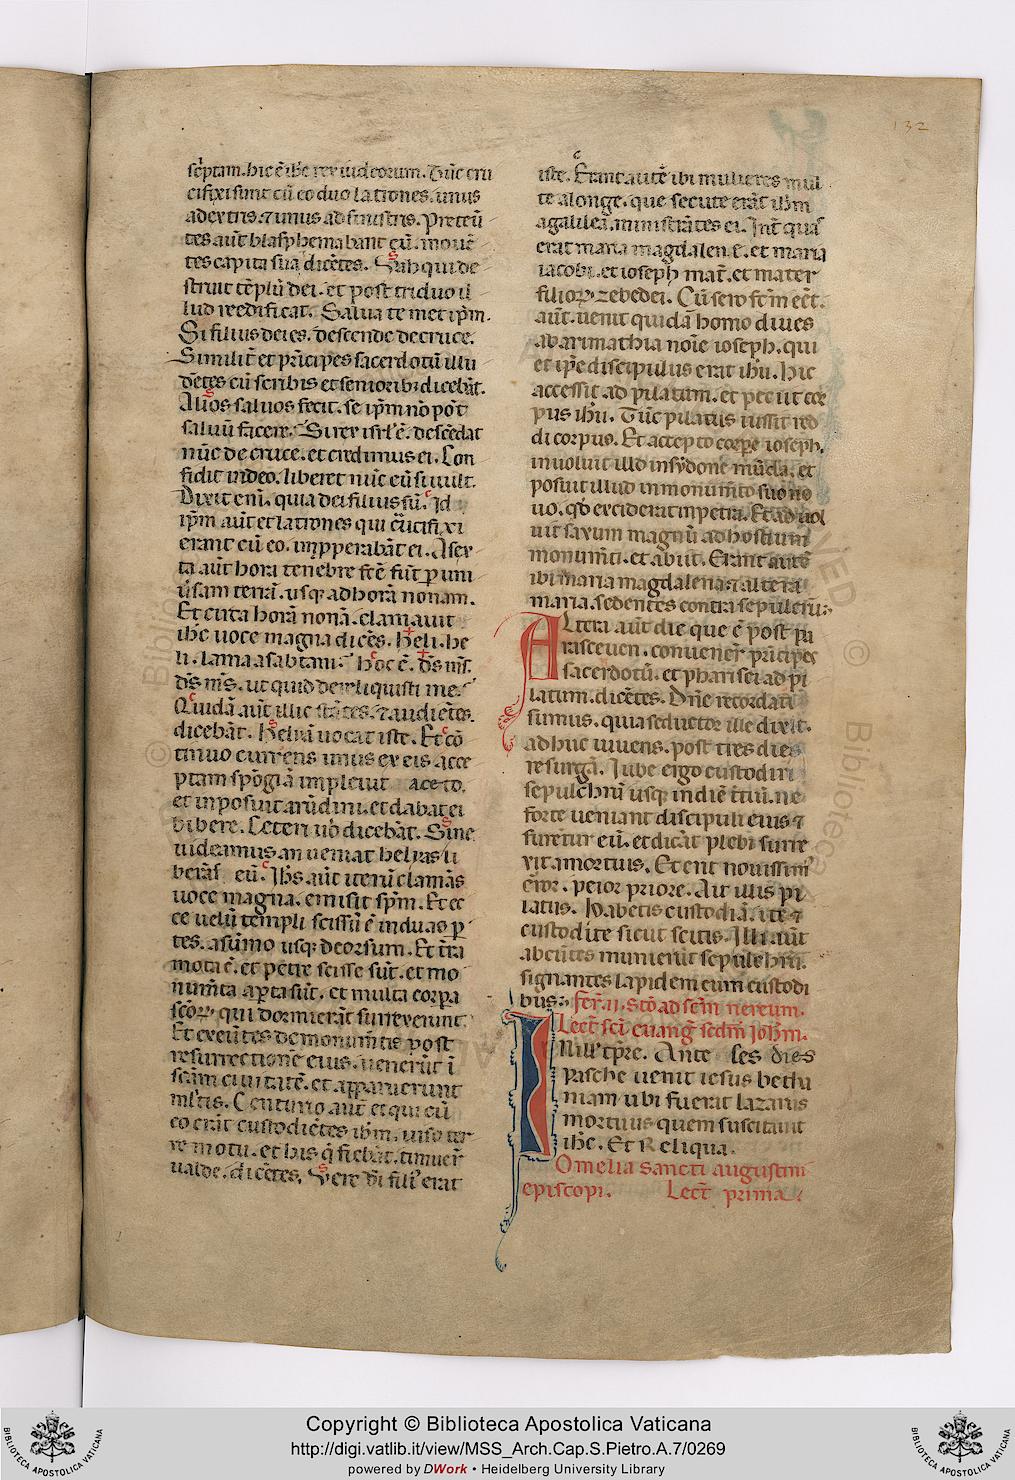 132
sc̄ptam. hic ē ih̄c rex iudeorum. Tūc cru
cifixi sunt cū eo duo latrones. unus
adextris. ⁊ unus ad sinistris. Preteū
tes aūt blasphemabant eū. mouē
tes capita sua dicētes. Uah qui de
struit tēplū dei. et post triduo il
lud reedificat. Salua te met ip̄m.
Si filius dei es. descende de cruce.
Similit̄ et prīcipes sacerdotū illu
dētes cū scribis et senioribꝫ dicebāt.
Alios saluos fecit. se ip̄m nō pōt
saluū facere. Si rex isrl' ē. descēdat
nūc de cruce. et credimus ei. Con
fidit in deo. liberet nūc eū si uult.
Dixit enī. quia dei filius sū. Id
ip̄m aūt et latrones qui crucifixi
erant cū eo. īpꝓperabāt ei. A sex
ta aūt hora tenebre fc̄e sūt ꝑ uni
ūsam terrā. usqꝫ ad horā nonam.
Et circa horā nonā. clamauit
ih̄c uoce magna dicēs. Heli. he
li. lama asabtani. hoc ē. dš mš.
dš mš. ut quid dereliquisti me.
Quidā aūt illic stātes. ⁊ audiētes.
dicebāt. Heliā uocat iste. Et cō
tinuo currens unus ex eis. acce
ptam spōgiā impleuit aceto.
et inposuit arūdini. et dabat ei
bibere. Ceteri uº dicebāt. Sine
uideamus. an ueniat helyas li
berās eū. Ih̄s aūt iterū clamās
uoce magna. emisit sp̄m. Et ec
ce uelū templi scissū ē in duas p
tes. asūmo usqꝫ deorsum. Et t̄ra
mota ē. et petre scisse sūt. et mo
numīta aꝑta sūt. et multa corpa
sc̄oꝝ. qui dormierāt surrexerunt.
Et exeūtes de monumītis post
resurrectionē eius. uenerūt ī
sc̄am ciuitatē. et apparuerunt
ml'tis. Centurio aūt et qui cū
eo erāt custodiētes ih̄m. uiso ter
re motu. et his q̄ fiebāt. timuer̄
ualde. dicētes. Vere dī fili' erat
iste. Erant autē ibi mulieres mul
te alonge. que secute erāt ih̄m
agalilea. ministrātes ei. Int̄ quas
erat maria magdalenē. et maria
iacobi. et ioseph mat̄. et mater
filioꝝ zebedei. Cū sero fc̄m eēt.
aūt. uenit quidā homo diues
ab arimathia noīe ioseph. qui
et ip̄e discipulus erat ih̄u. Hic
accessit ad pilatum. et peciit cor
pus ih̄u. Tūc pilatus iussit red
di corpus. Et accepto corpe ioseph.
inuoluit illd̄ in sydone mūda. et
posuit illud in monumīto suo no
uo. qd̄ exciderat in petra. Et aduol
uit saxum magnū ad hostium
monumīti. et abiit. Erant autē
ibi maria magdalena. ⁊ altera
maria. sedentes contra sepulcrū:
Altera aūt die que ē post pa
rasceuen. conuener̄ prīcipes
sacerdotū. et pharisei ad pi
latum. dicētes. Dn̄e recordati
sumus. quia seductor ille dixit.
adhuc uiuens. post tres dies
resurgā. Iube ergo custodiri
sepulchrū usqꝫ in diē t̄tiū. ne
forte ueniant discipuli eius ⁊
furētur eū. et dicāt plebi surre
xit amortuis. Et erit nouissim'
ēror. peior priore. Ait illis pi
latus. Habetis custodiā. ite ⁊
custodite sicut scitis. Illi aūt
abeūtes munierūt sepulchrū.
signantes lapidem cum custodi
bus:
Fer. ii. Stō ad scm̄ nereum.
Lect̄ sc̄i euang̅ sedm̄ Ioh̄m.
In ill' tp̄re. Ante sex dies
pasche uenit iesus betha
niam ubi fuerat lazarus
mortuus quem suscitauit
ih̄c. Et Reliqua.
Omelia sancti augustini
episcopi. Lect̄ prima.
Copyright © Biblioteca Apostolica Vaticana
http://digi.vatlib.it/view/MSS_Arch.Cap.S.Pietro.A.7/0269
powered by DWork • Heidelberg University Library
BIBLIOTECA APOSTOLICA VATICANA
BIBLIOTECA APOSTOLICA VATICANA